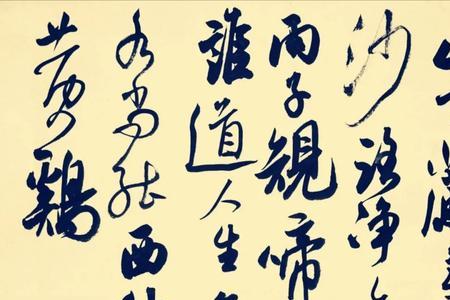 沙路净
雨子規啼
誰道人生
水尚能西
黄鷄